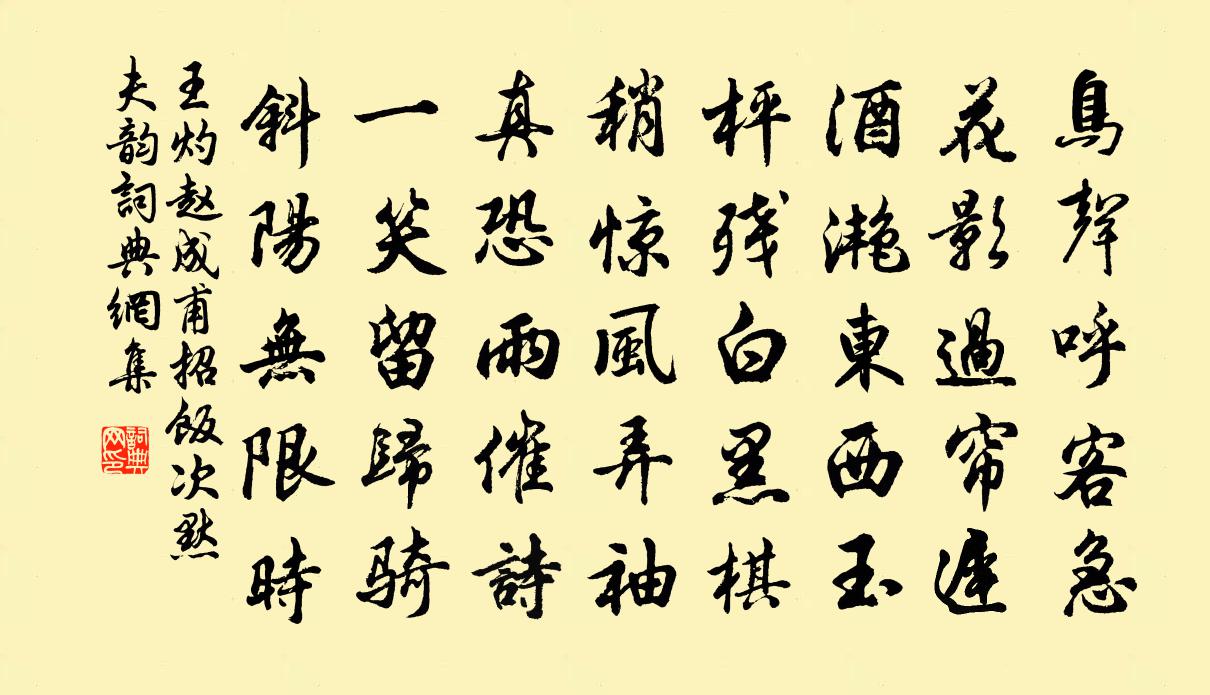 鳥聲呼客急
花影過帘遲
酒灔東西玉
枰残白黑棋
稍惊風弄袖
真恐雨催詩
一笑留歸骑
斜陽無限時
王灼赵成甫招飯次黙
夫韵詞典網集
詞典網印